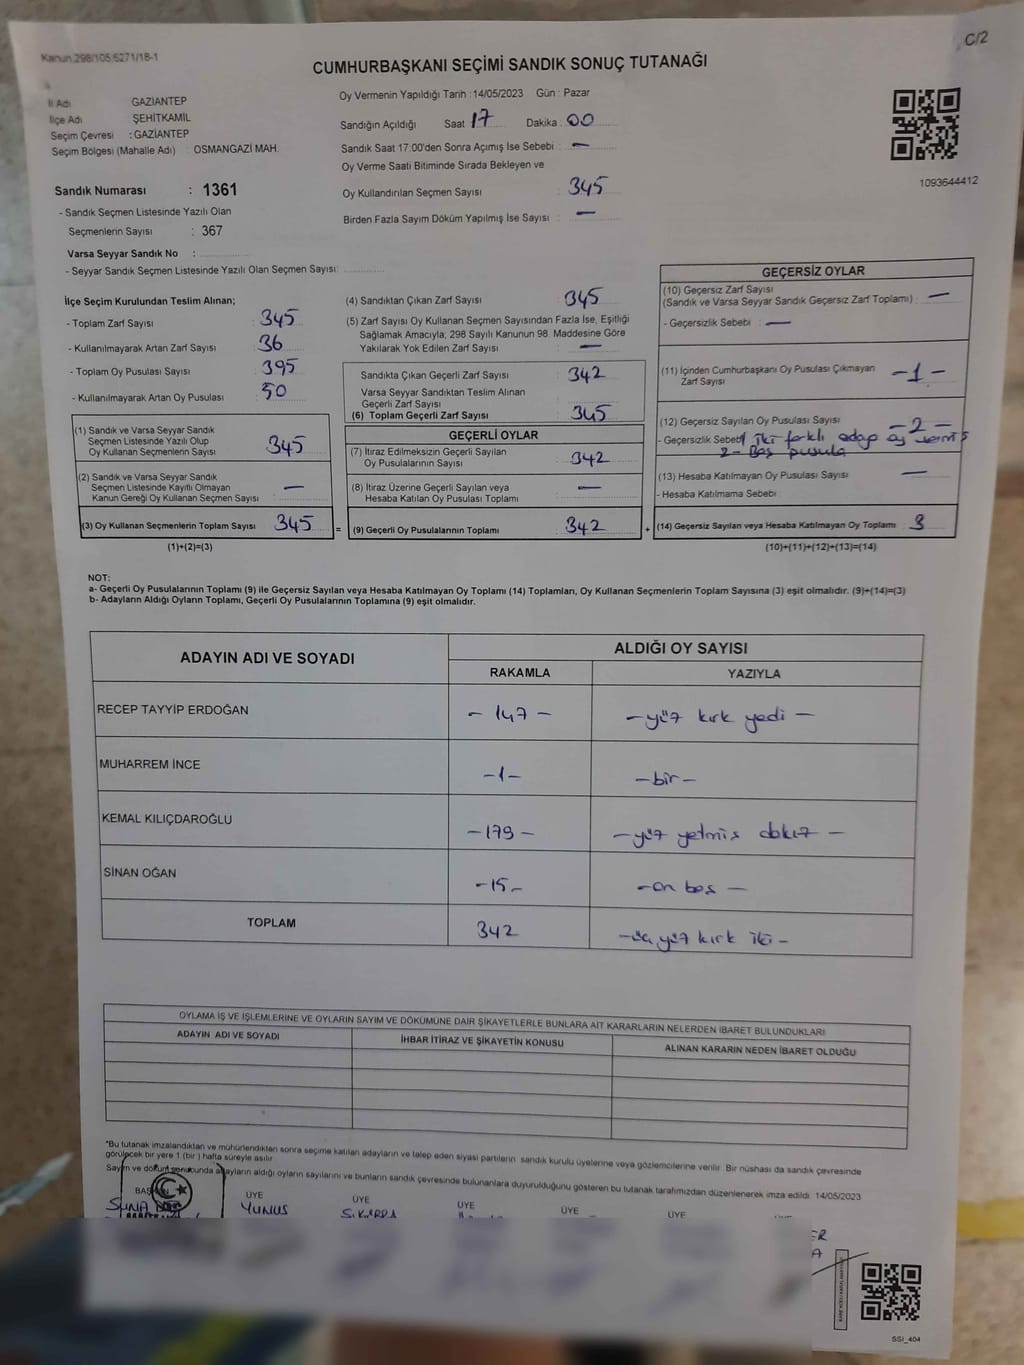 Kanun.298/105:6271/18-1
C/2
CUMHURBAŞKANI SEÇİMİ SANDIK SONUÇ TUTANAĞI
İl Adı GAZİANTEP
İlçe Adı ŞEHİTKAMİL
Seçim Çevresi : GAZİANTEP
Seçim Bölgesi (Mahalle Adı) : OSMANGAZİ MAH.
Oy Vermenin Yapıldığı Tarih :14/05/2023 Gün : Pazar
Sandığın Açıldığı Saat 17 Dakika : 00
Sandık Saat 17:00'den Sonra Açımış İse Sebebi : —
Oy Verme Saati Bitiminde Sırada Bekleyen ve
Oy Kullandırılan Seçmen Sayısı : 345
Birden Fazla Sayım Döküm Yapılmış İse Sayısı : —
1093644412
Sandık Numarası : 1361
- Sandık Seçmen Listesinde Yazılı Olan
Seçmenlerin Sayısı : 367
Varsa Seyyar Sandık No :
- Seyyar Sandık Seçmen Listesinde Yazılı Olan Seçmen Sayısı:
İlçe Seçim Kurulundan Teslim Alınan;
- Toplam Zarf Sayısı : 345
- Kullanılmayarak Artan Zarf Sayısı : 36
- Toplam Oy Pusulası Sayısı : 395
- Kullanılmayarak Artan Oy Pusulası : 50
(1) Sandık ve Varsa Seyyar Sandık
Seçmen Listesinde Yazılı Olup
Oy Kullanan Seçmenlerin Sayısı : 345
(2) Sandık ve Varsa Seyyar Sandık
Seçmen Listesinde Kayıtlı Olmayan
Kanun Gereği Oy Kullanan Seçmen Sayısı : —
(3) Oy Kullanan Seçmenlerin Toplam Sayısı : 345 =
(1)+(2)=(3)
(4) Sandıktan Çıkan Zarf Sayısı : 345
(5) Zarf Sayısı Oy Kullanan Seçmen Sayısından Fazla İse, Eşitliği
Sağlamak Amacıyla; 298 Sayılı Kanunun 98. Maddesine Göre
Yakılarak Yok Edilen Zarf Sayısı : —
Sandıkta Çıkan Geçerli Zarf Sayısı : 342
Varsa Seyyar Sandıktan Teslim Alınan
Geçerli Zarf Sayısı :
(6) Toplam Geçerli Zarf Sayısı : 345
GEÇERLİ OYLAR
(7) İtiraz Edilmeksizin Geçerli Sayılan
Oy Pusulalarının Sayısı : 342
(8) İtiraz Üzerine Geçerli Sayılan veya
Hesaba Katılan Oy Pusulası Toplamı : —
(9) Geçerli Oy Pusulalarının Toplamı : 342 +
GEÇERSİZ OYLAR
(10) Geçersiz Zarf Sayısı
(Sandık ve Varsa Seyyar Sandık Geçersiz Zarf Toplamı) : —
- Geçersizlik Sebebi : —
(11) İçinden Cumhurbaşkanı Oy Pusulası Çıkmayan
Zarf Sayısı - 1 -
(12) Geçersiz Sayılan Oy Pusulası Sayısı - 2 -
- Geçersizlik Sebebi 1 iki farklı aday oy vermiş
2 - Boş pusula
(13) Hesaba Katılmayan Oy Pusulası Sayısı : —
- Hesaba Katılmama Sebebi :
(14) Geçersiz Sayılan veya Hesaba Katılmayan Oy Toplamı : 3
(10)+(11)+(12)+(13)=(14)
NOT:
a- Geçerli Oy Pusulalarının Toplamı (9) ile Geçersiz Sayılan veya Hesaba Katılmayan Oy Toplamı (14) Toplamları, Oy Kullanan Seçmenlerin Toplam Sayısına (3) eşit olmalıdır. (9)+(14)=(3)
b- Adayların Aldığı Oyların Toplamı, Geçerli Oy Pusulalarının Toplamına (9) eşit olmalıdır.
ADAYIN ADI VE SOYADI ALDIĞI OY SAYISI
RAKAMLA YAZIYLA
RECEP TAYYİP ERDOĞAN - 147 - - yüz kırk yedi -
MUHARREM İNCE - 1 - - bir -
KEMAL KILIÇDAROĞLU - 179 - - yüz yetmiş dokuz -
SİNAN OĞAN - 15 - - on beş -
TOPLAM 342 - üç yüz kırk iki -
OYLAMA İŞ VE İŞLEMLERİNE VE OYLARIN SAYIM VE DÖKÜMÜNE DAİR ŞİKAYETLERLE BUNLARA AİT KARARLARIN NELERDEN İBARET BULUNDUKLARI
ADAYIN ADI VE SOYADI İHBAR İTİRAZ VE ŞİKAYETİN KONUSU ALINAN KARARIN NEDEN İBARET OLDUĞU
*Bu tutanak imzalandıktan ve mühürlendikten sonra seçime katılan adayların ve talep eden siyasi partilerin sandık kurulu üyelerine veya gözlemcilerine verilir. Bir nüshası da sandık çevresinde
görülecek bir yere 1 (bir) hafta süreyle asılır.
Sayım ve döküm sonucunda adayların aldığı oyların sayılarını ve bunların sandık çevresinde bulunanlara duyurulduğunu gösteren bu tutanak tarafımızdan düzenlenerek imza edildi. 14/05/2023
ÜYE ÜYE ÜYE ÜYE ÜYE
YUNUS
SSI_404